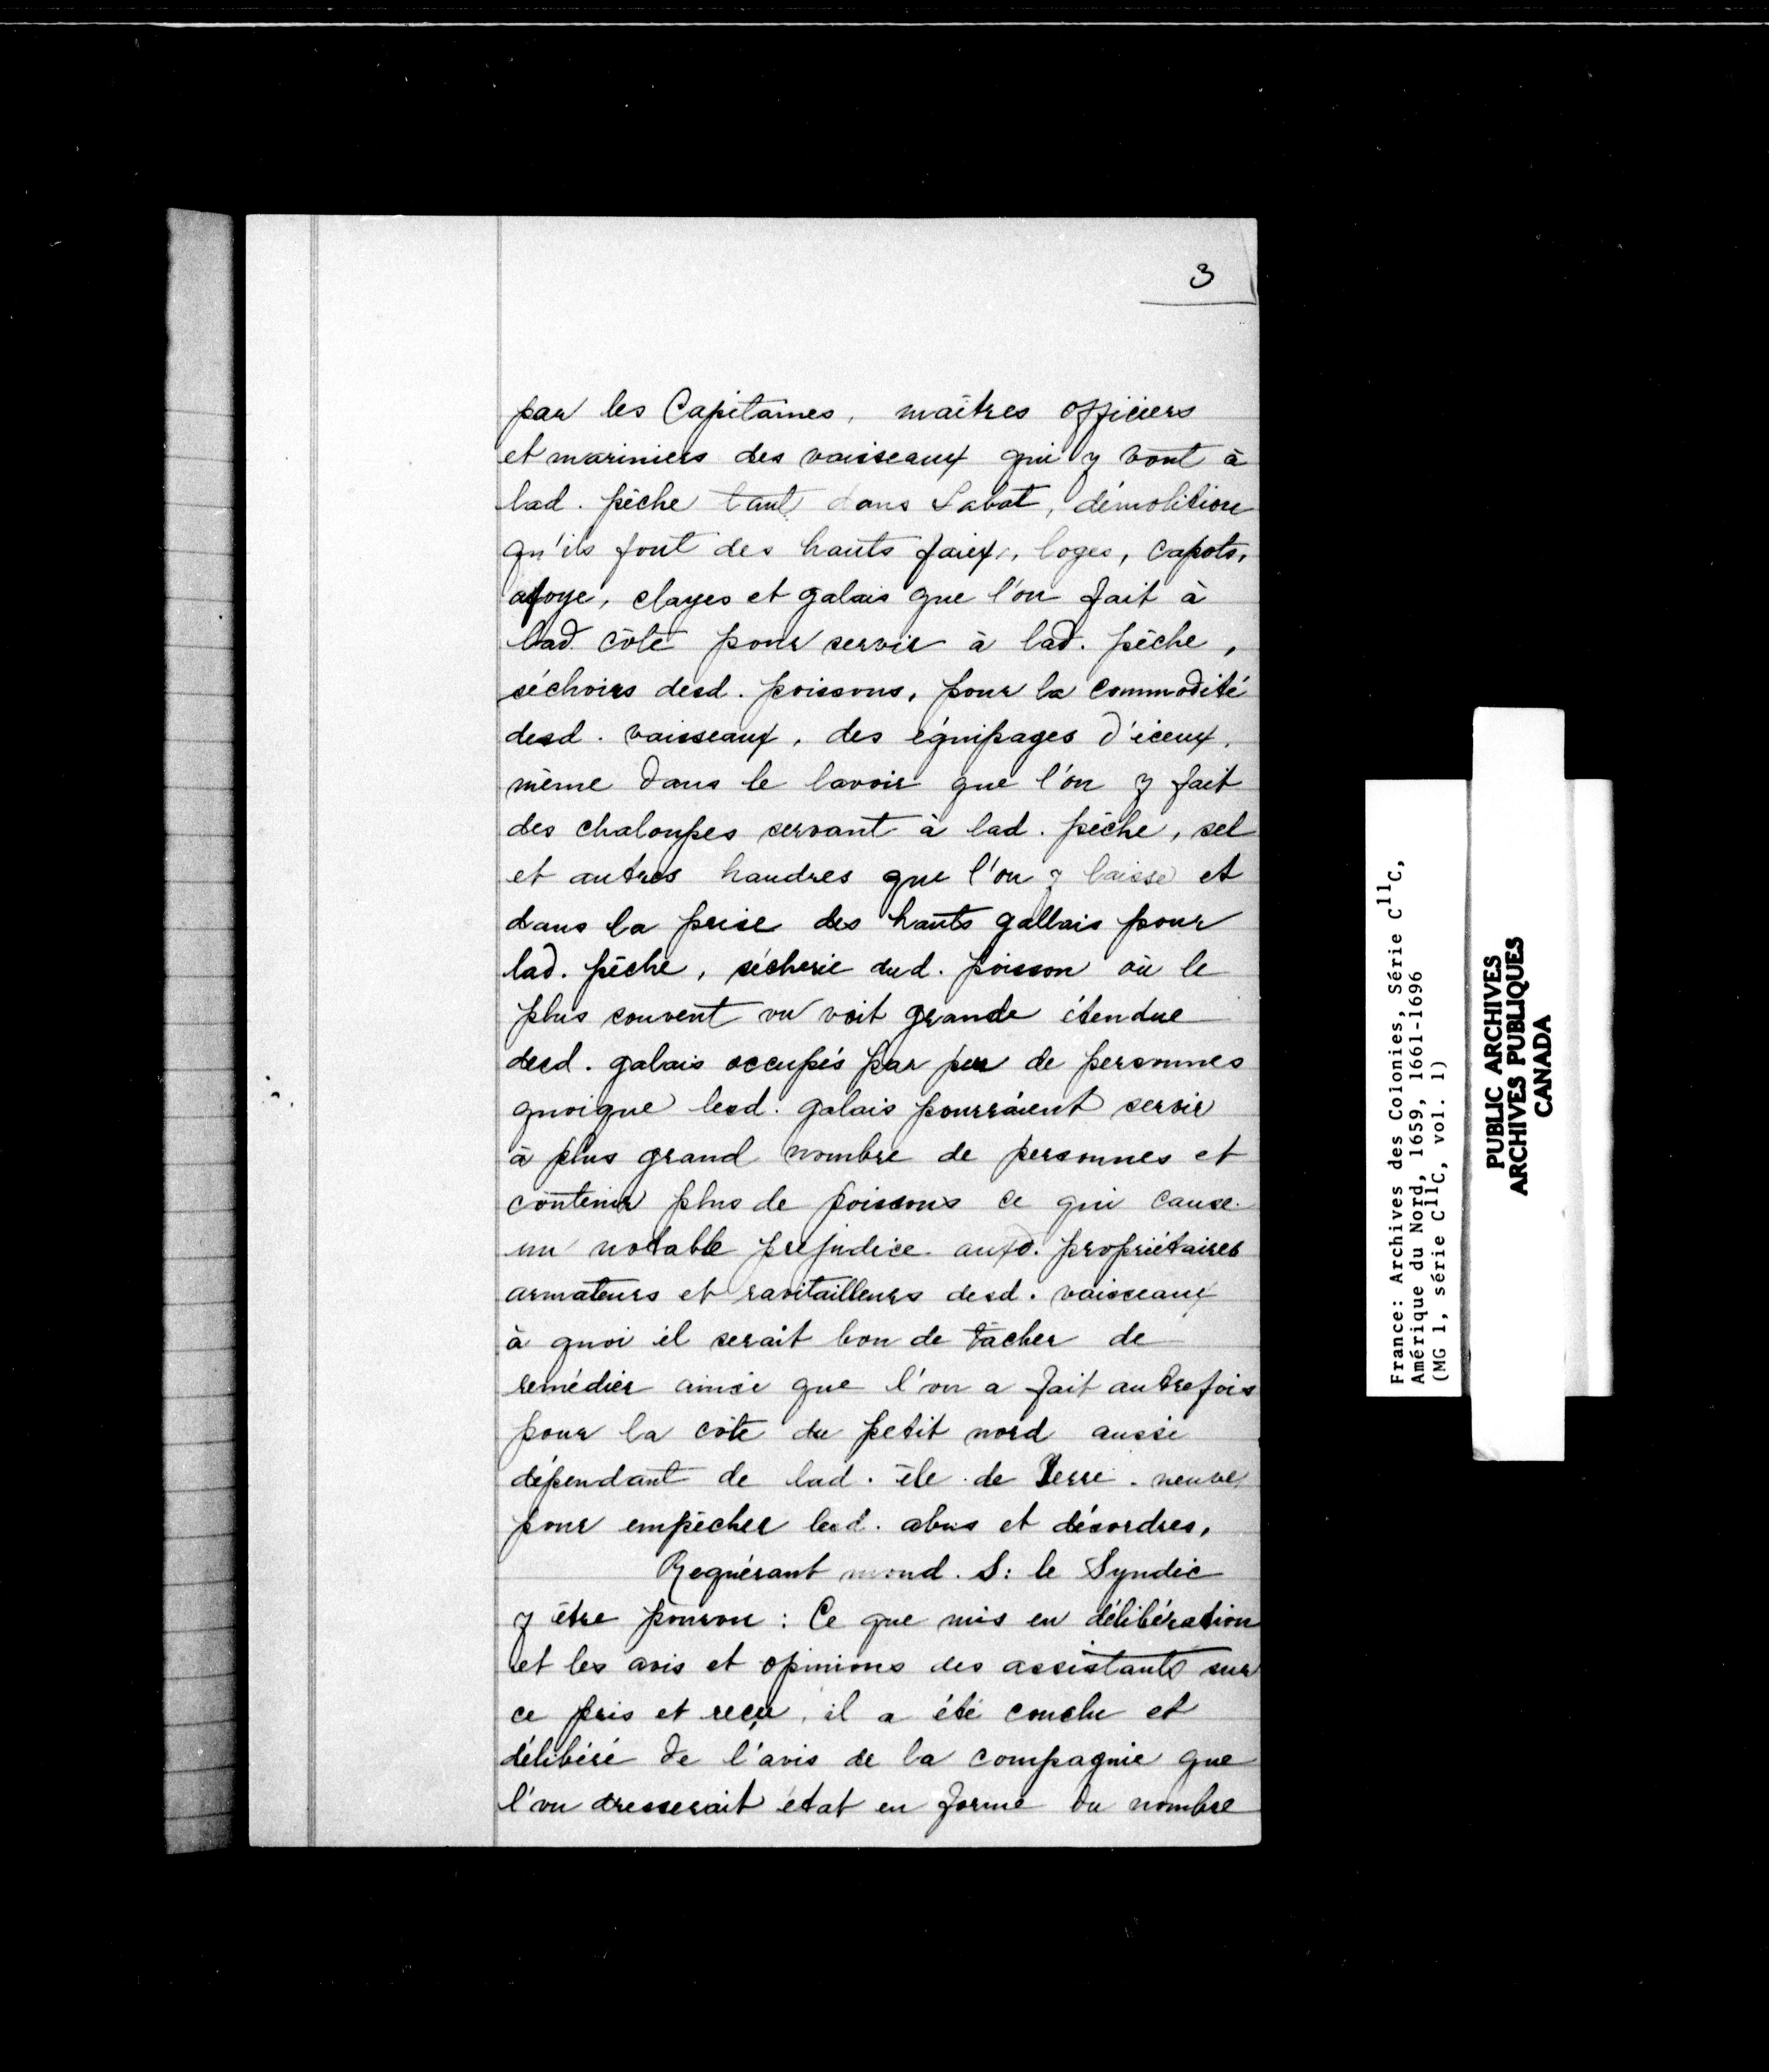 3
par les Capitaines, maîtres officiers
et mariniers des vaisseaux qui y vont à
lad. pêche tant dans Labat, démolition
qu'ils font des hauts faix, loges, capots,
clayes et galais que l'on fait à
lad. côte pour servir à lad. pêche,
séchoirs desd. poissons, pour la commodité
desd. vaisseaux, des équipages d'iceux,
même dans le lavoir que l'on y fait
des chaloupes servant à lad. pêche, sel
et autres haudres que l'on y laisse et
dans la prise des hauts gallais pour
lad. pêche, sécherie dud. poisson où le
plus souvent on voit grande étendue
desd. galais occupés par peu de personnes
quoique lesd. galais pourraient servir
à plus grand nombre de personnes et
contenir plus de poissons ce qui cause
un notable préjudice auxd. propriétaires
armateurs et ravitailleurs desd. vaisseaux
à quoi il serait bon de tâcher de
remédier ainsi que l'on a fait autrefois
pour la côte du petit nord aussi
dépendant de lad. île de Terre-neuve
pour empêcher lesd. abus et désordres,
Requérant mond. S: le Syndic
y être pourvu : Ce que mis en délibération
et les avis et opinions des assistants sur
ce pris et reçu, il a été conclu et
délibéré de l'avis de la compagnie que
l'on dresserait état en forme du nombre
France: Archives des Colonies, Série C11C,
Amérique du Nord, 1659, 1661-1696
(MG 1, série C11C, vol. 1)
PUBLIC ARCHIVES
ARCHIVES PUBLIQUES
CANADA